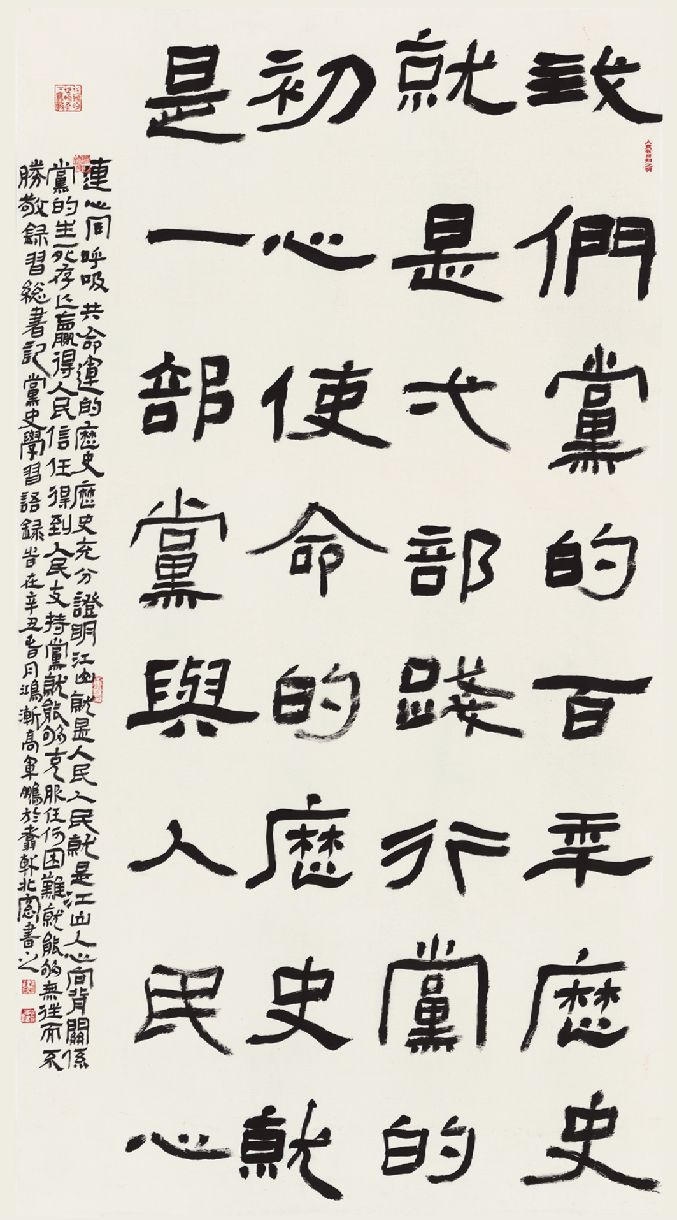 我們黨的百年歷史
就是弌部踐行黨的
初心使命的歷史就
是一部黨與人民心
連心同呼吸共命運的歷史歷史充分證明江山就是人民人民就是江山人心向背關係
黨的生死存亡贏得人民信任得到人民支持黨就能夠克服任何困難就能夠無往而不
勝敬録習總書記黨史學習語録旹在辛丑春月鴻漸高軍鵬於軒北窗書之